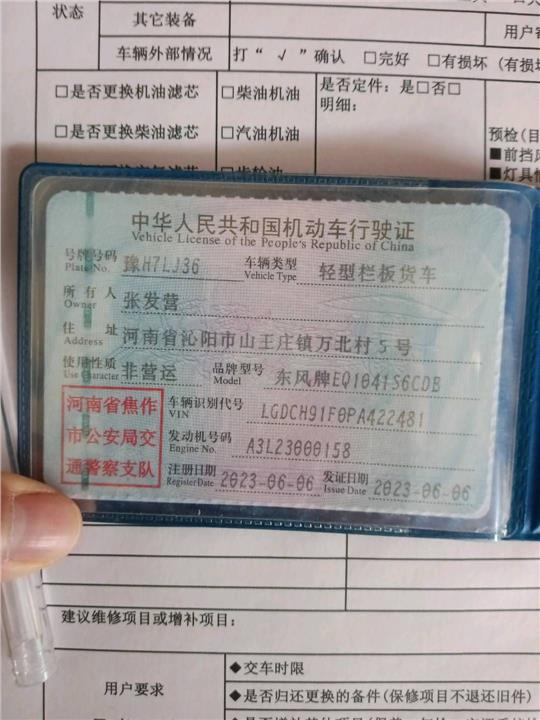 状态
其它装备
车辆外部情况
打“ √ ”确认 □完好 □有损坏
□是否更换机油滤芯
□柴油机油
是否定件：是□否□
明细：
□是否更换柴油滤芯
□汽油机油
预检
■前挡
■灯具
中华人民共和国机动车行驶证
Vehicle License of the People's Republic of China
号牌号码 豫H7LJ36 车辆类型 轻型栏板货车
Plate No. Vehicle Type
所有人 张发营
Owner
住址 河南省沁阳市山王庄镇万北村5号
Address
使用性质 非营运 品牌型号 东风牌EQ1041S6CDB
Use Character Model
河南省焦作
市公安局交
通警察支队
车辆识别代号 LGDCH91F0PA422481
VIN
发动机号码 A3L23000158
Engine No.
注册日期 2023-06-06 发证日期 2023-06-06
Register Date Issue Date
建议维修项目或增补项目：
用户要求
◆交车时限
◆是否归还更换的备件(保修项目不退还旧件)